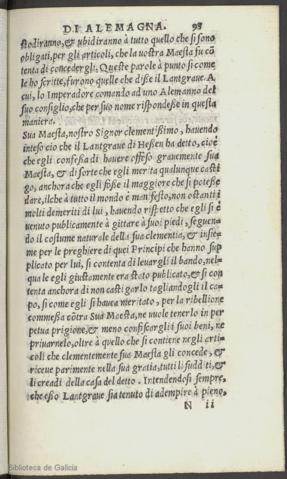 DI ALEMAGNA. 98
stodiranno, & ubidiranno à tutto quello che si sono
obligati, per gli articoli, che la uostra Maesta fu cõ
tenta di conceder gli. Queste parole à punto si come
le ho scritte, furono quelle che disse il Lantgraue. A
cui, lo Imperadore comando ad uno Alemanno del
suo consiglio, che per suo nome rispondesse in questa
maniera.
Sua Maesta, nostro Signor clementissimo, hauendo
inteso cio che il Lantgraue di Hessen ha detto, cioè
che egli confessa di hauere offeso grauemente sua
Maesta, & di sorte che egli merita qualunque casti
go, anchora che egli fosse il maggiore che si potesse
dare, il che à tutto il mondo è manifesto, non ostanti i
molti demeriti di lui, hauendo rispetto che egli si è
uenuto publicamente à gittare à suoi piedi, seguen-
do il costume naturale della sua clementia, & insie-
me per le preghiere di quei Principi che hanno sup
plicato per lui, si contenta di leuargli il bando, nel-
qua le egli giustamente era stato publicato, & si con
tenta anchora di non castigarlo tagliandogli il ca-
po, si come egli si haueua meritato, per la ribellione
commessa cõtra Sua Maesta, ne uuole tenerlo in per
petua prigione, & meno confiscargli i suoi beni, ne
priuarnelo, oltre à quello che si contiene negli arti-
coli che clementemente sua Maesta gli concede, &
riceue parimente nella sua gratia, tutti li sudditi, &
li creadi della casa del detto. Intendendosi sempre,
che esso Lantgraue sia tenuto di adempire à pieno,
N ii
Biblioteca de Galicia